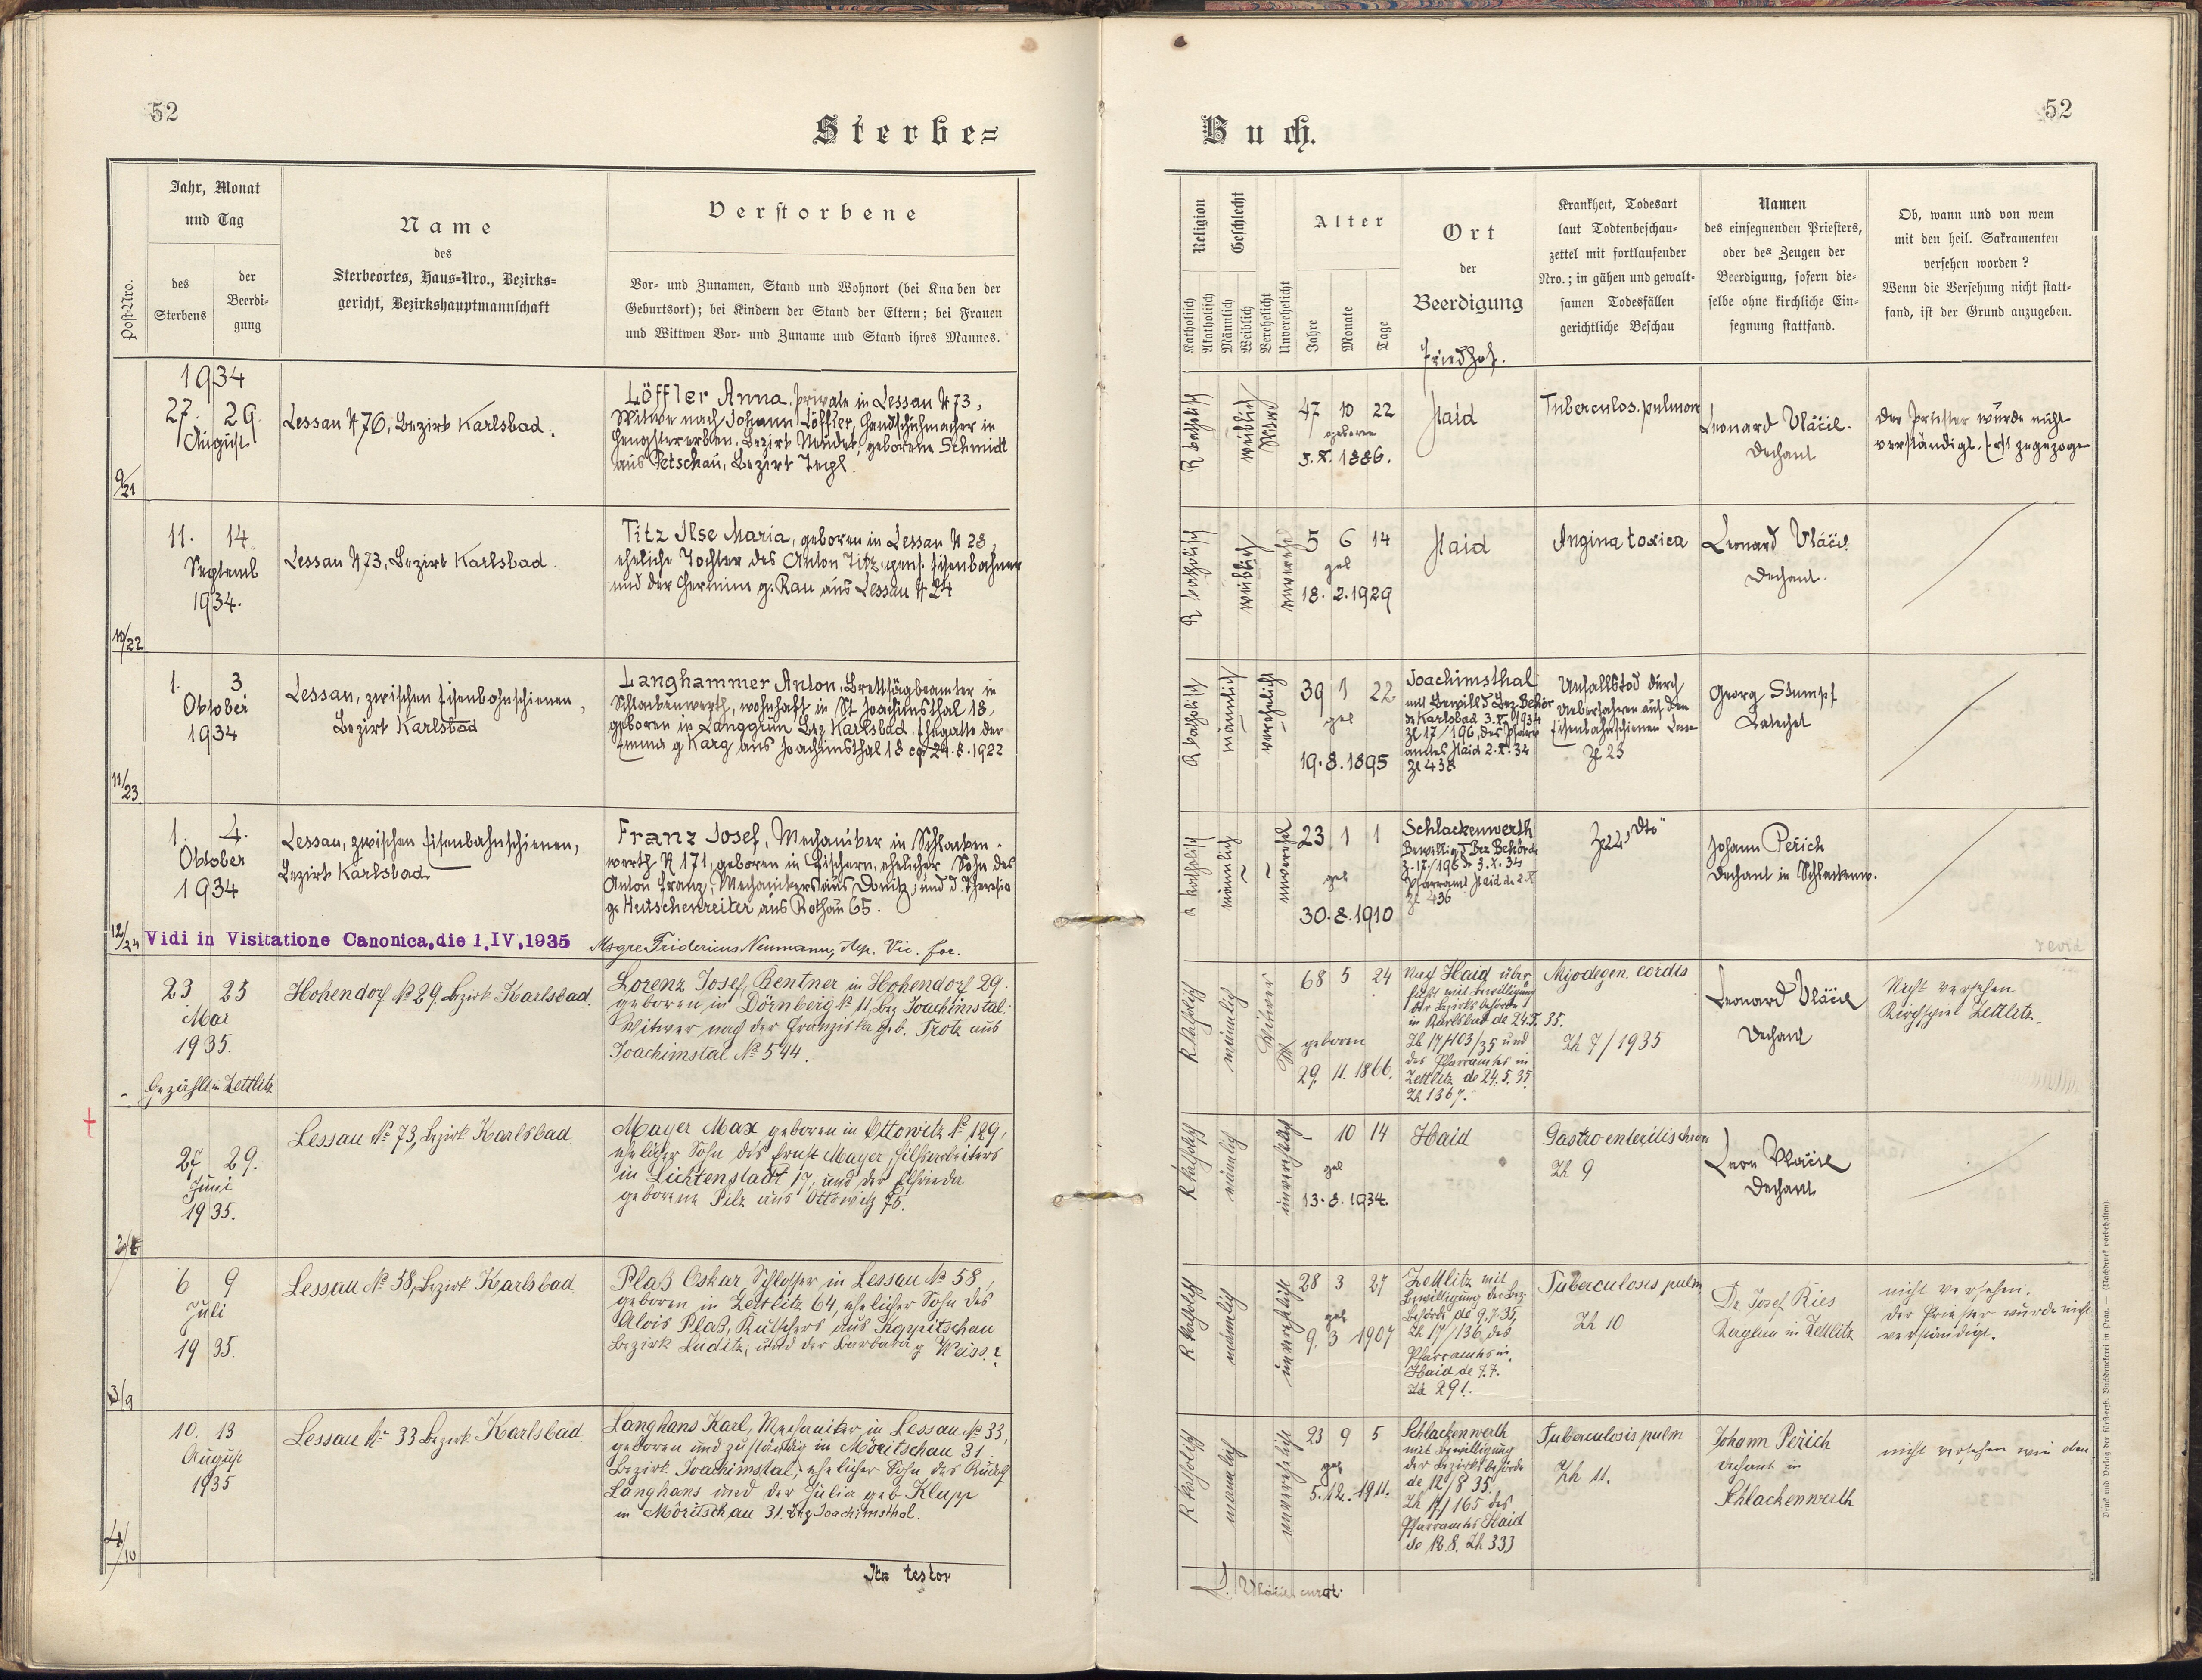 52
52
Sterbe=
Buch.
Post-Nro.
Jahr, Monat
und Tag
des
Sterbens
der
Beerdi-
gung
Name
des
Sterbeortes, Haus=Nro., Bezirks=
gericht, Bezirkshauptmannschaft
Verstorbene
Vor- und Zunamen, Stand und Wohnort (bei Knaben der
Geburtsort); bei Kindern der Stand der Eltern; bei Frauen
und Wittwen Vor- und Zuname und Stand ihres Mannes.
Religion
Katholisch
Akatholisch
Geschlecht
Männlich
Weiblich
Verehelicht
Unverehelicht
Alter
Jahre
Monate
Tage
Ort
der
Beerdigung
Friedhof.
Krankheit, Todesart
laut Todtenbeschau-
zettel mit fortlaufender
Nro.; in gähen und gewalt-
samen Todesfällen
gerichtliche Beschau
Namen
des einsegnenden Priesters,
oder des Zeugen der
Beerdigung, sofern die-
selbe ohne kirchliche Ein-
segnung stattfand.
Ob, wann und von wem
mit den heil. Sakramenten
versehen worden?
Wenn die Versehung nicht statt-
fand, ist der Grund anzugeben.
9/21
1934
27. 29.
August
Lessau N 76, Bezirk Karlsbad.
Löffler Anna, private in Lessau N 73,
Witwe nach Johann Löffler, Handschuhmacher in
Hengstererben, Bezirk Neudek, geborene Schmidt
aus Petschau, Bezirk Tepl.
R katholisch
weiblich
Witwe
47 10 22
geboren
5. X. 1886.
Haid
Tuberculos. pulmon
Leonard Vlácil.
Dechant
Der Priester wurde nicht
verständigt. Erst zugezogen
10/22
11. 14.
Septemb
1934.
Lessau N 73, Bezirk Karlsbad.
Titz Ilse Maria, geboren in Lessau N 28,
eheliche Tochter des Anton Titz, pens. Eisenbahner
und der Hermine g. Rau aus Lessau N 24
R katholisch
weiblich
unvereh
5 6 14
geb
18. 2. 1929
Haid
Angina toxica
Leonard Vlácil.
Dechant.
11/23
1. 3
Oktober
1934
Lessau, zwischen Eisenbahnschienen,
Bezirk Karlsbad
Langhammer Anton, Brettsägbeamter in
Schlackenwerth, wohnhaft in St Joachimsthal 18,
geboren in Langgrün Bez Karlsbad. Ehegatte der
Emma g Karg aus Joachimsthal 18 cop 24. 8. 1922
R katholisch
männlich
verehelicht
39 1 22
geb
19. 8. 1895
Joachimsthal
mit Bewill d Bez. Behör
de Karlsbad 3. X. 1934
Zl 17/196, des Pfarr
amtes Haid 2. X. 34
Zl 438
Unfallstod durch
Ueberfahren auf den
Eisenbahnschienen
Zl 23
Georg Stumpf
Katechet
12/24
1. 4.
Oktober
1934
Lessau, zwischen Eisenbahnschienen,
Bezirk Karlsbad
Franz Josef, Mechaniker in Schlacken-
werth N 171, geboren in Fischern, ehelicher Sohn des
Anton Franz, Mechanikers aus Donitz, und d. Theresia
g. Hutschenreiter aus Rothau 65.
R katholisch
männlich
unvereh
23 1 1
geb
30. 8. 1910
Schlackenwerth
Bewillig d Bez Behörde
Z. 17/196 d 3. X. 34
Pfarramt Haid de 2. X
Zl 436
Zl 24 "dto"
Johann Peřich
Dechant in Schlackenw.
Vidi in Visitatione Canonica, die 1. IV. 1935
Msgre Fridericus Neumann, Aep. Vic. for.
revid
23. 25
Mai
1935.
Gezählt in Zettlitz
Hohendorf № 29. Bezirk Karlsbad.
Lorenz Josef, Rentner in Hohendorf 29.
geboren in Dörnberg № 11, Bez Joachimstal.
Witwer nach der Franziska geb. Trotz aus
Joachimstal № 544.
R katholisch
männlich
Witwer
68 5 24
geboren
29. 11. 1866.
Nach Haid über
führt mit Bewilligung
der Bezirksbehörde
in Karlsbad de 24. 5. 35.
Zh 17/103/35 und
des Pfarramtes in
Zettlitz de 24. 5. 35
Zh 1367.
Myodegen. cordis
Zh 7/1935
Leonard Vlácil
Dechant
Nicht versehen
Kirchspiel Zettlitz.
27 29.
Juni
1935.
Lessau № 73, Bezirk Karlsbad
Mayer Max geboren in Ottowitz № 129,
ehelicher Sohn des Ernst Mayer, Hilfsarbeiters
in Lichtenstadt 17, und der Elfrieda
geborene Pilz aus Ottowitz 75.
R katholisch
männlich
unverehelicht
– 10 14
geb
13. 8. 1934.
Haid
Gastroenteritis chron
Zh 9
Leon Vlácil
Dechant
3/9
6 9
Juli
1935.
Lessau № 58, Bezirk Karlsbad
Plaß Oskar, Schlosser in Lessau № 58,
geboren in Zettlitz 64, ehelicher Sohn des
Alois Plaß, Kutschers aus Koppitschau
Bezirk Luditz, und der Barbara g Weiss.
R katholisch
männlich
unverehelicht
28 3 27
geb
9. 3 1907
Zettlitz mit
Bewilligung der Bez
Behörde de 9. 7. 35,
Zh 17/136, des
Pfarramts in
Haid de 7. 7.
Zh 291.
Tuberculosis pulm
Zh 10
Dr Josef Ries
Kaplan in Zettlitz
nicht versehen.
Der Priester wurde nicht
verständigt.
4/10
10. 13
August
1935
Lessau № 33 Bezirk Karlsbad.
Langhans Karl, Mechaniker in Lessau № 33,
geboren und zuständig in Möritschau 31
Bezirk Joachimstal, ehelicher Sohn des Rudolf
Langhans und der Julia geb Klupp
in Möritschau 31. Bez Joachimsthal.
R katholisch
männlich
unverehelicht
23 9 5
geb
5. 12. 1911.
Schlackenwerth
mit Bewilligung
der Bezirksbehörde
de 12/8 35.
Zh 17/165 des
Pfarramts Haid
de 12. 8. Zh 333
Tuberculosis pulm
Zh 11.
Johann Peřich
Dechant in
Schlackenwerth
nicht versehen wie oben
Ita testor
L. Vlácil
Druck und Verlag der fürsterzb. Buchdruckerei in Prag. — (Nachdruck vorbehalten).